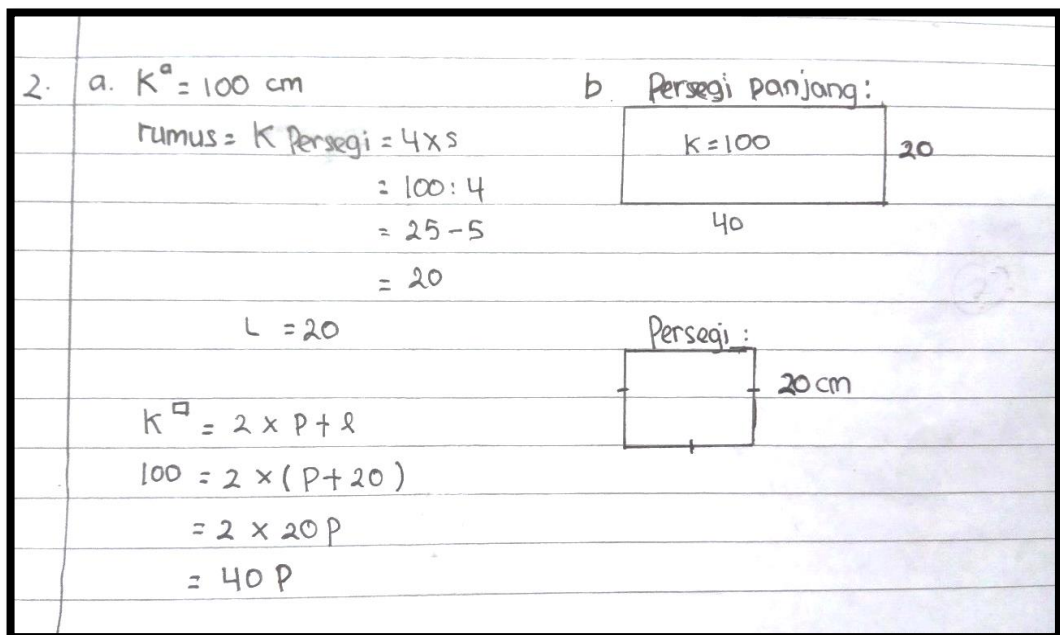 2. a. K▫ = 100 cm
rumus = K Persegi = 4 x s
= 100 : 4
= 25 - 5
= 20
L = 20
K▭ = 2 x P + l
100 = 2 x (P + 20)
= 2 x 20 P
= 40 P
b Persegi panjang :
K = 100
20
40
Persegi :
20 cm